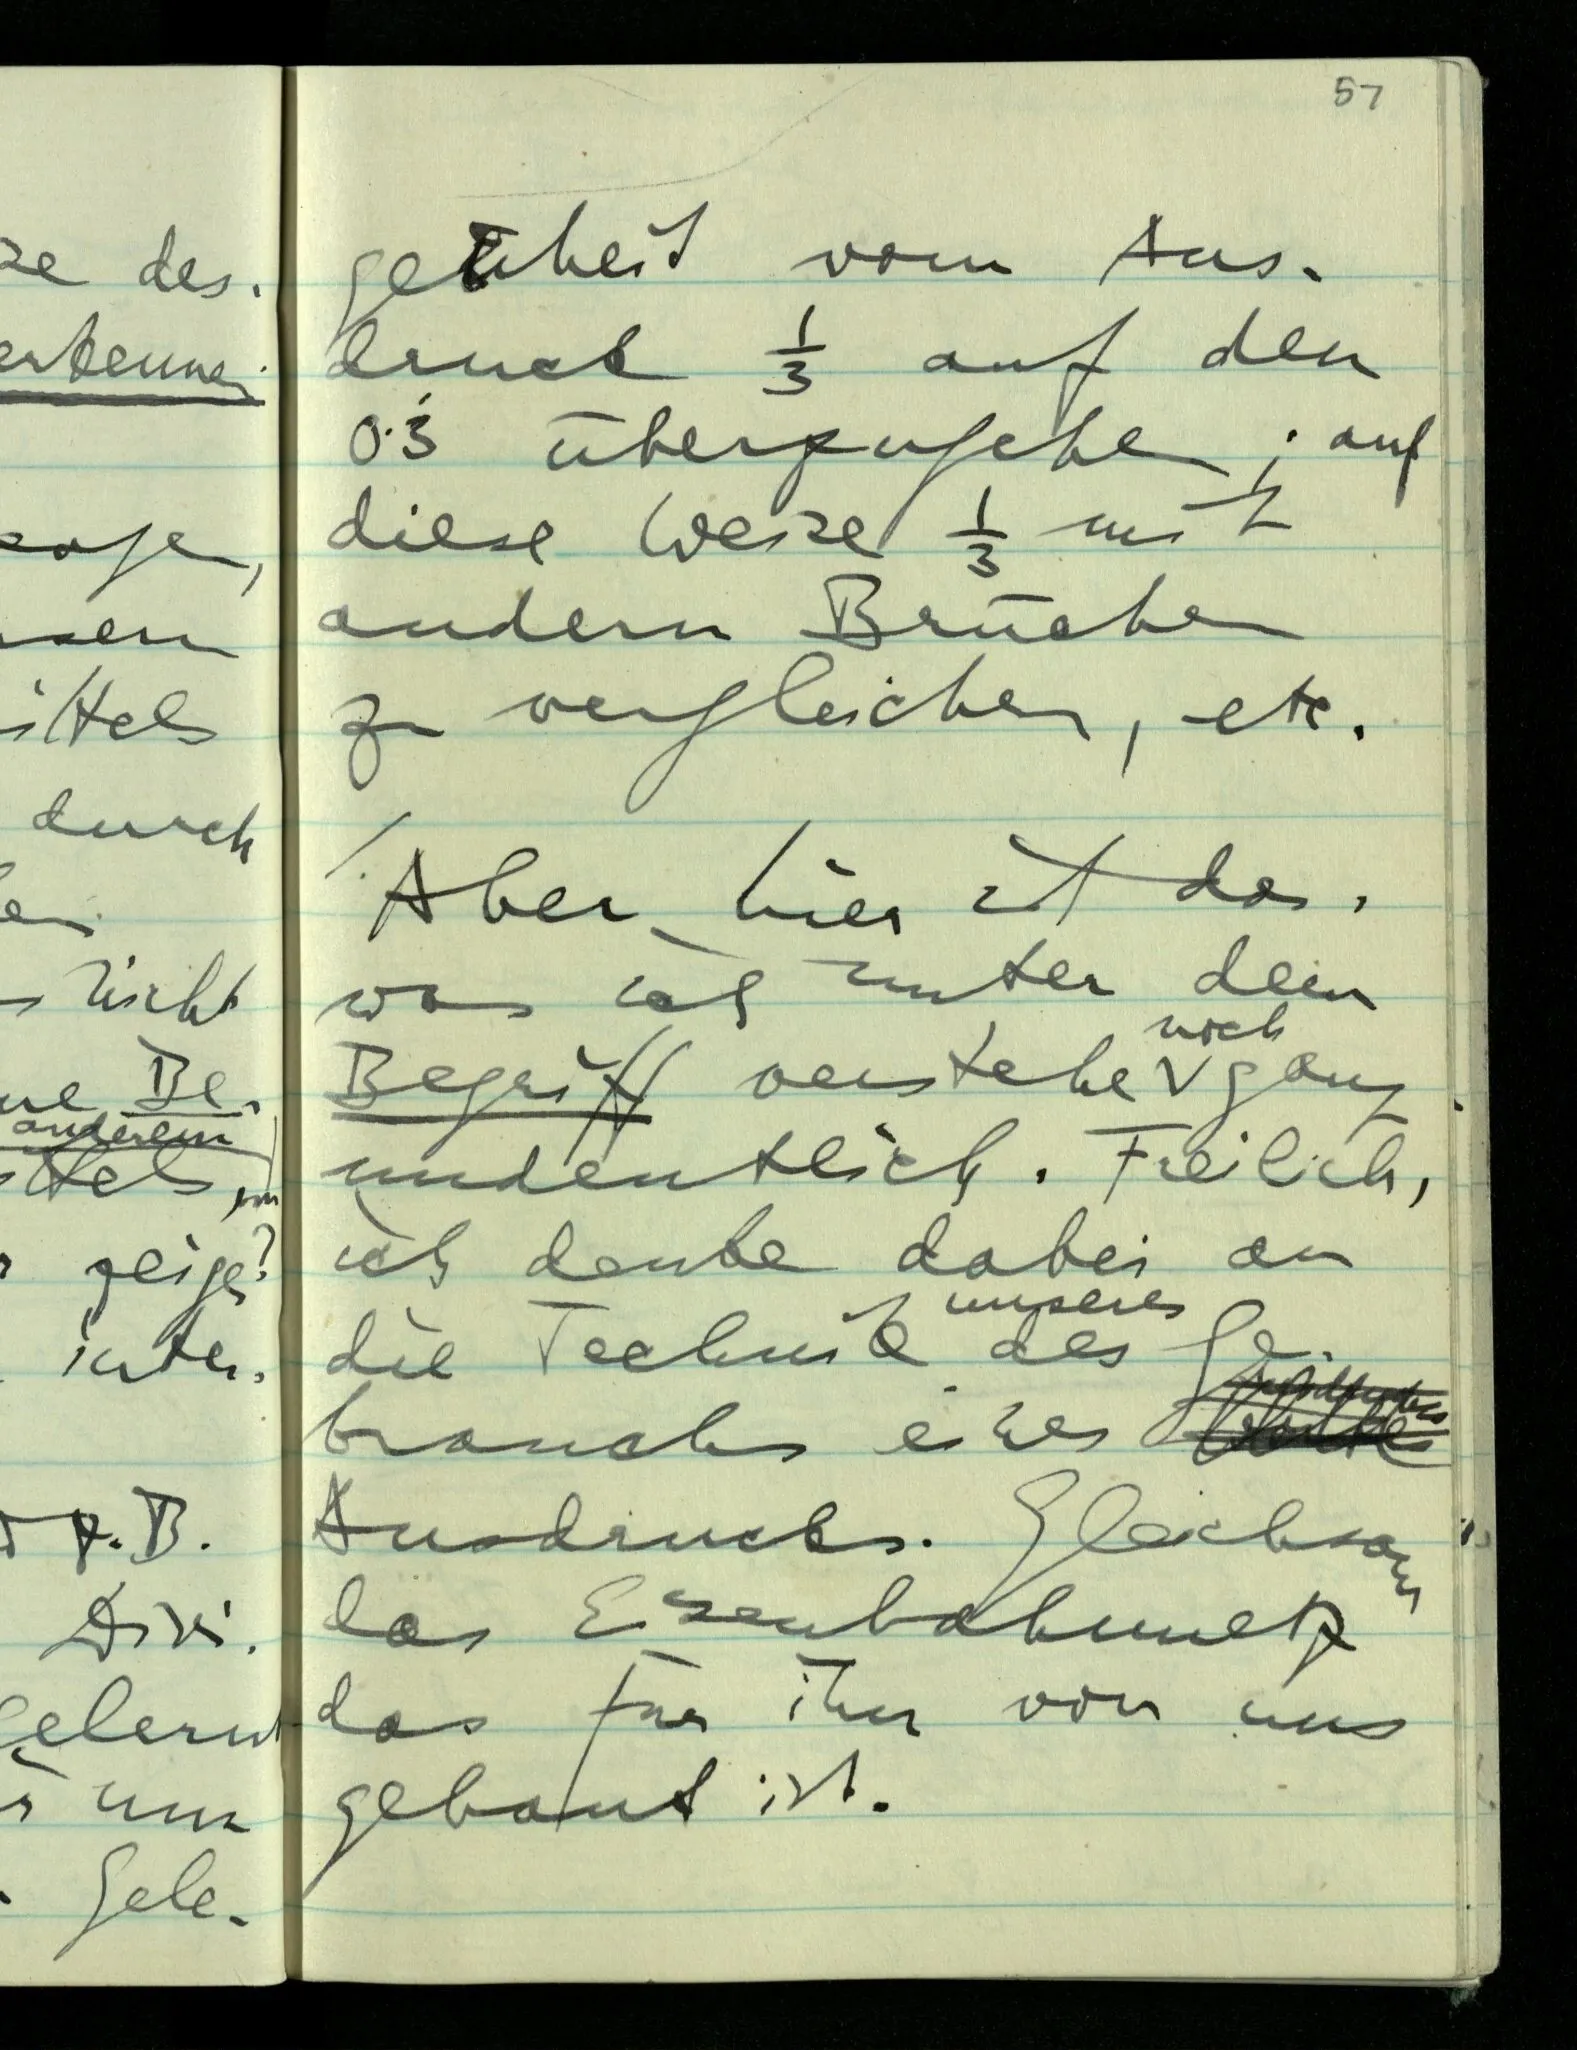 ze des-
erkennen
sagen,
ssen
ittels
durch
en
s nicht
ne Be-
anderem
ttels, um
r zeige?
inter-
z.B.
Divi-
gelernt
r um
Gele-
57
genheit vom Aus-
druck 1/3 auf den
0·3̇ überzugehen; auf
diese Weise 1/3 mit
andern Brüchen
zu vergleichen, etc.
/ Aber hier ist das,
was ich unter dem
noch
Begriff verstehe ∨ ganz
undeutlich. Freilich,
ich denke dabei an
unseres
die Technik des Ge-
brauchs eines
Ausdrucks. Gleichsam
das Eisenbahnnetz
das für ihn von uns
gebaut ist.